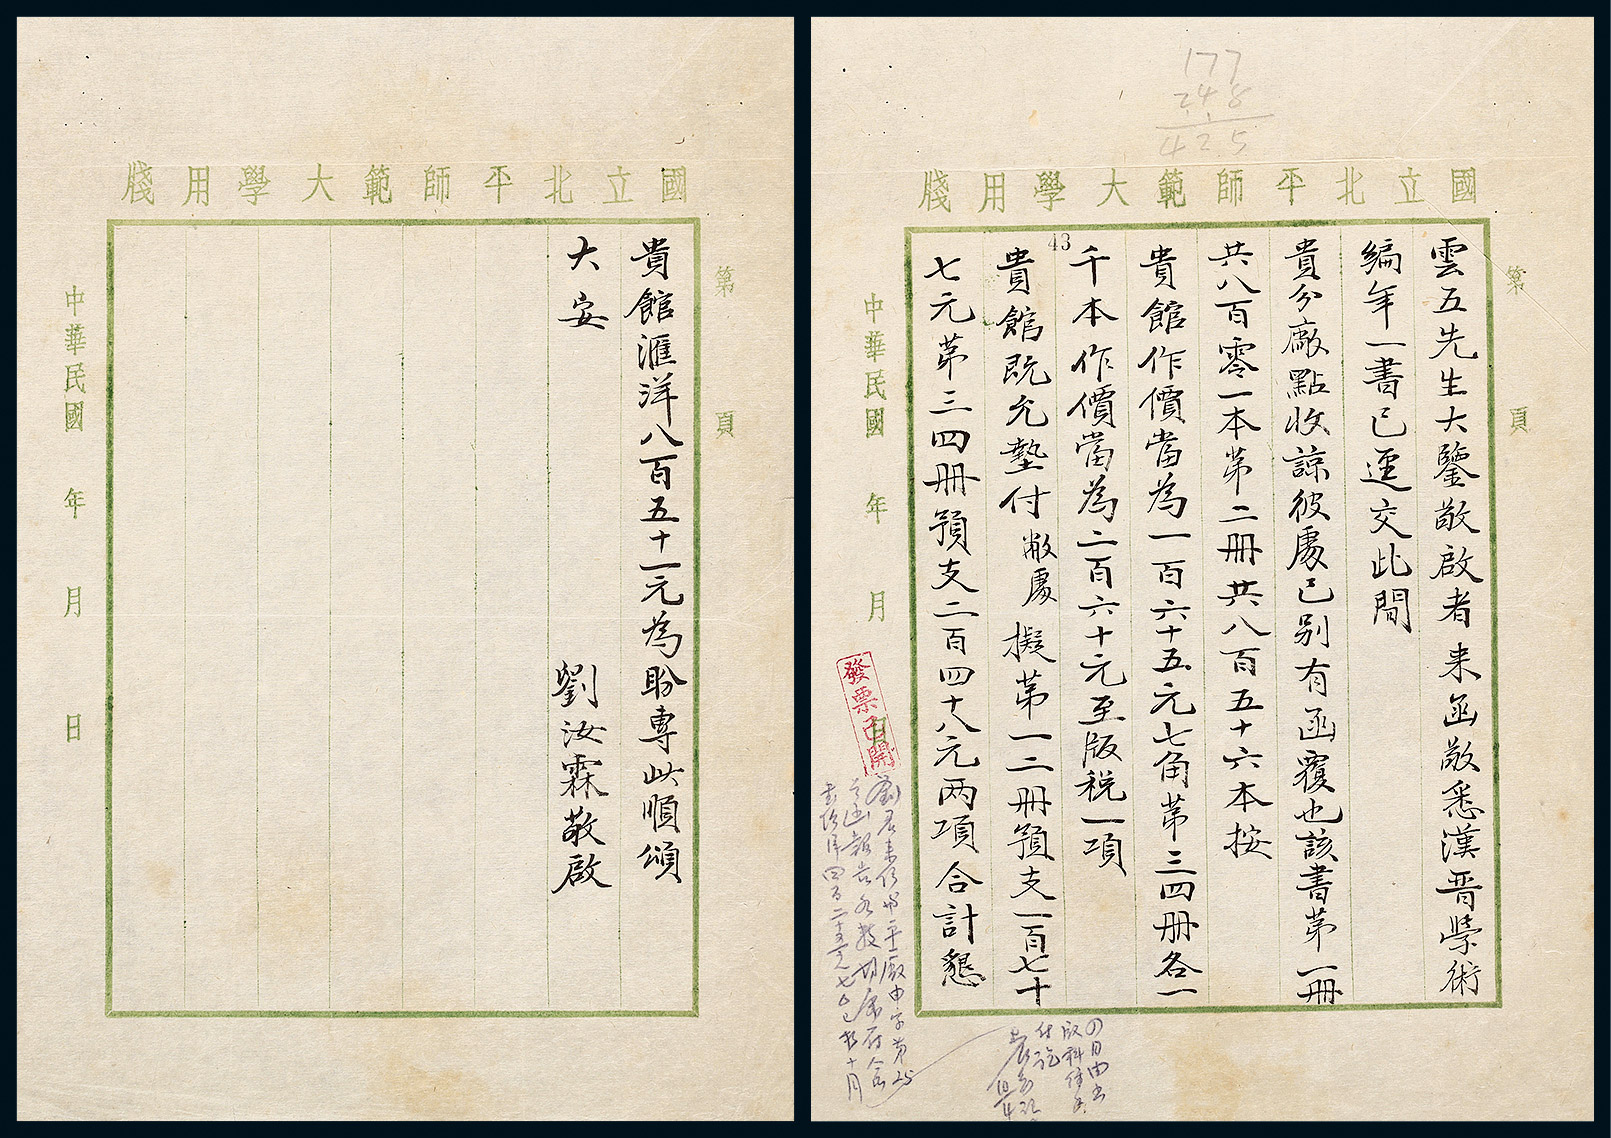 177
248
425
國立北平師範大學用牋
第 頁
雲五先生大鑒敬啟者来函敬悉漢晋學術
編年一書已逕交此間
貴分廠點收諒彼處已别有函覆也該書第一册
共八百零一本第二册共八百五十六本按
貴館作價當為一百六十五元七角第三四册各一
千本作價當為二百六十元至版税一項
43
貴館既允墊付敝處擬第一二册預支一百七十
七元第三四册預支二百四十八元两項合計懇
中華民國 年 月 日
發票已開
國立北平師範大學用牋
第 頁
貴館滙洋八百五十一元為盼專此順頌
大安
劉汝霖敬啟
中華民國 年 月 日